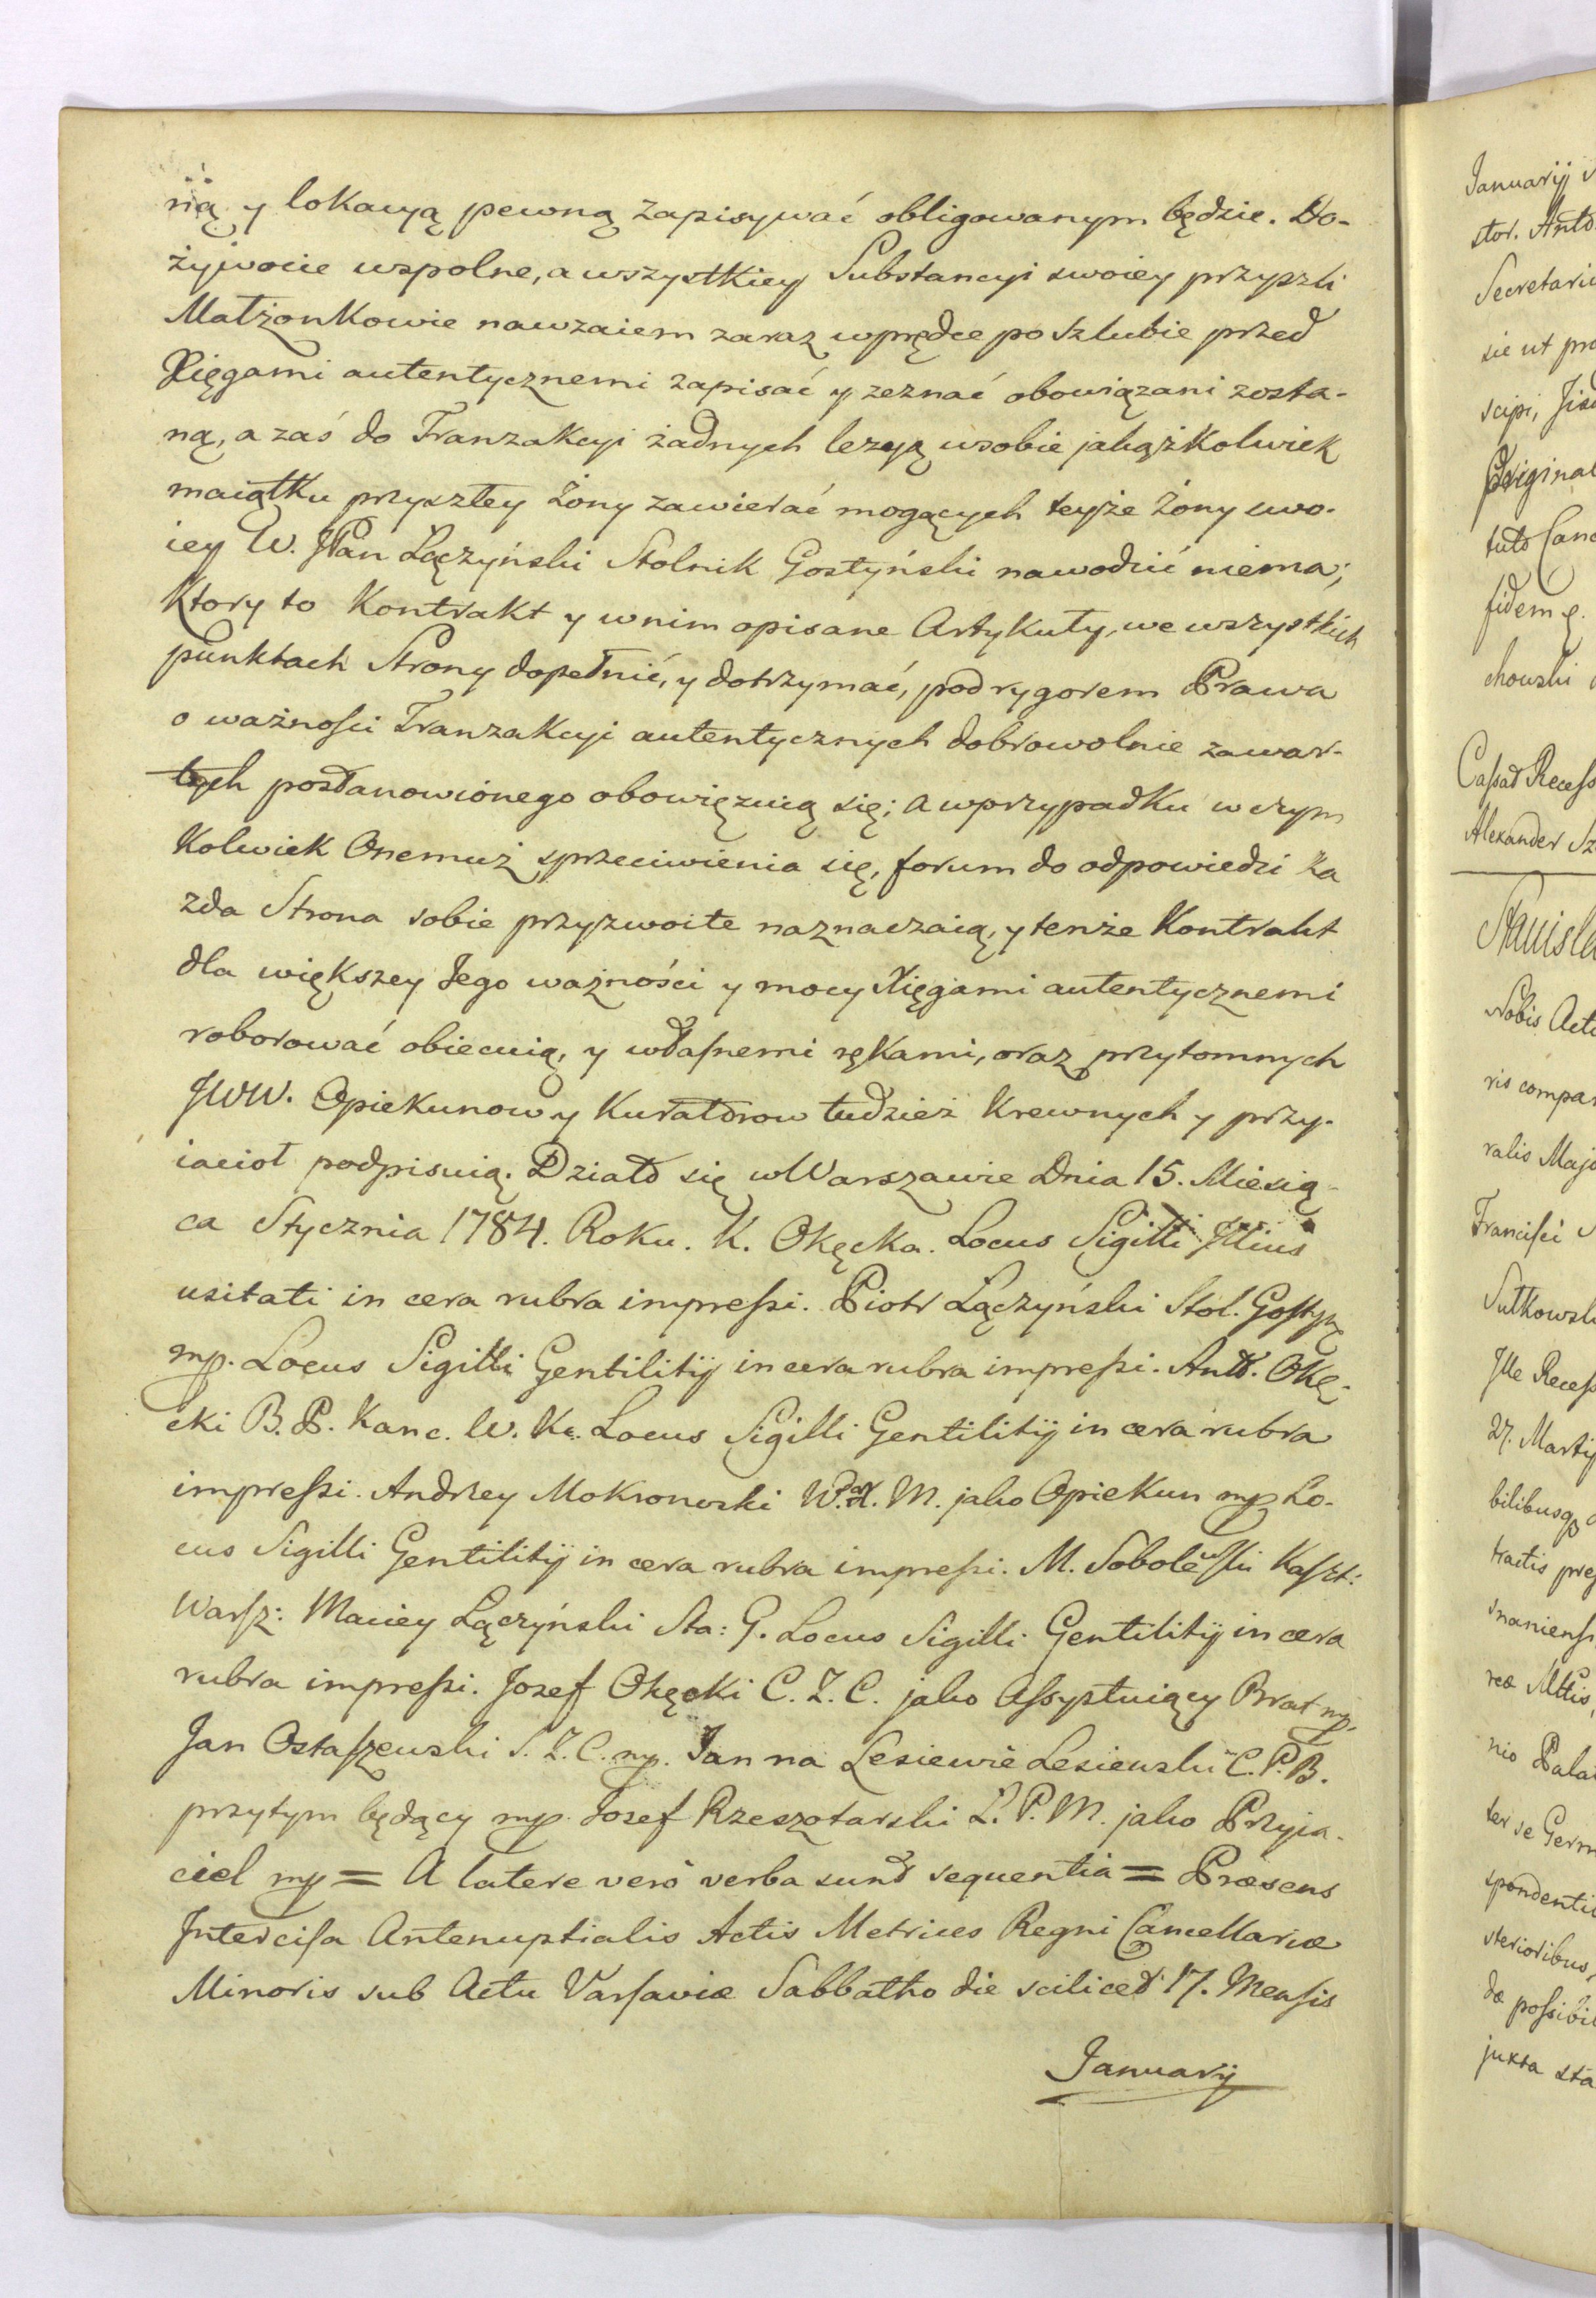 nią y lokacyą pewną zapisywać obligowanym będzie. Do-
żywocie wspolne, a wszystkiey Substancyi swoiey przyszli
Małżonkowie nawzaiem zaraz wprędce po Szlubie przed
Xięgami autentycznemi zapisać y zeznać obowiązani zosta-
ną, a zaś do Tranzakcyi żadnych lezyą wsobie jakążkolwiek
maiątku przyszłey Żony zawierać mogących teyże Żony swo-
iey W. JPan Łączyński Stolnik Gostyński nawodzić niema;
Ktory to Kontrakt y wnim opisane Artykuły, we wszystkich
punktach Strony dopełnić, y dotrzymać, pod rygorem Prawa
o ważności Tranzakcyi autentycznych dobrowolnie zawar-
tych postanowionego obowięzuią się; a wprzypadku w czym
Kolwiek Onemuż sprzeciwienia się, forum do odpowiedzi Ka
żda Strona sobie przyzwoite naznaczaią, y tenże Kontrakt
dla większey Jego ważności y mocy Xięgami autentycznemi
roborować obiecuią, y własnemi rękami, oraz przytomnych
JWW. Opiekunow y Kuratorow tudzież Krewnych y przy-
iacioł podpisuią. Działo się w Warszawie Dnia 15. Miesią-
ca Stycznia 1784. Roku. K. Okęcka. Locus Sigilli Illius
usitati in cera rubra impressi. Piotr Łączyński Stol. Gostyń
mp. Locus Sigilli Gentilitij in cera rubra impressi. Ant. Okę-
cki B. P. Kanc. W. K. Locus Sigilli Gentilitij in cera rubra
impressi. Andrzey Mokronowski W. M. jako Opiekun mp Lo-
cus Sigilli Gentilitij in cera rubra impressi. M. Sobolewski Kaszt:
Warsz: Maciey Łączyński Sta: G. Locus Sigilli Gentilitij in cera
rubra impressi. Jozef Okęcki C. Z. C. jako Assystuiący Brat mp.
Jan Ostaszewski S. Z. C. mp. Jan na Lesiewie Lesiewski C. P. B.
przytym będący mp. Jozef Rzeszotarski Ł. P. M. jako Przyia-
ciel mp = A latere verò verba sunt sequentia = Præsens
Intercisa Antenuptialis Actis Metrices Regni Cancellariæ
Minoris sub Actu Varsaviæ Sabbatho die scilicet 17. Mensis
Januarij
Januarij
stor. Anto
Secretari
sie ut
scipi,
Original
tuto Canc
fidem
chowski
Cassat Recess
Alexander Sz
Stanisla
Nobis Act
ris compar
ralis Majo
Francisci
Sułkowsk
Ille Recess
27. Martij
bilibusq
tractis
snaniens
reæ Mttis,
nio Pala
ter se Germ
spondenti
sterioribus,
dæ possibi
juxta sta